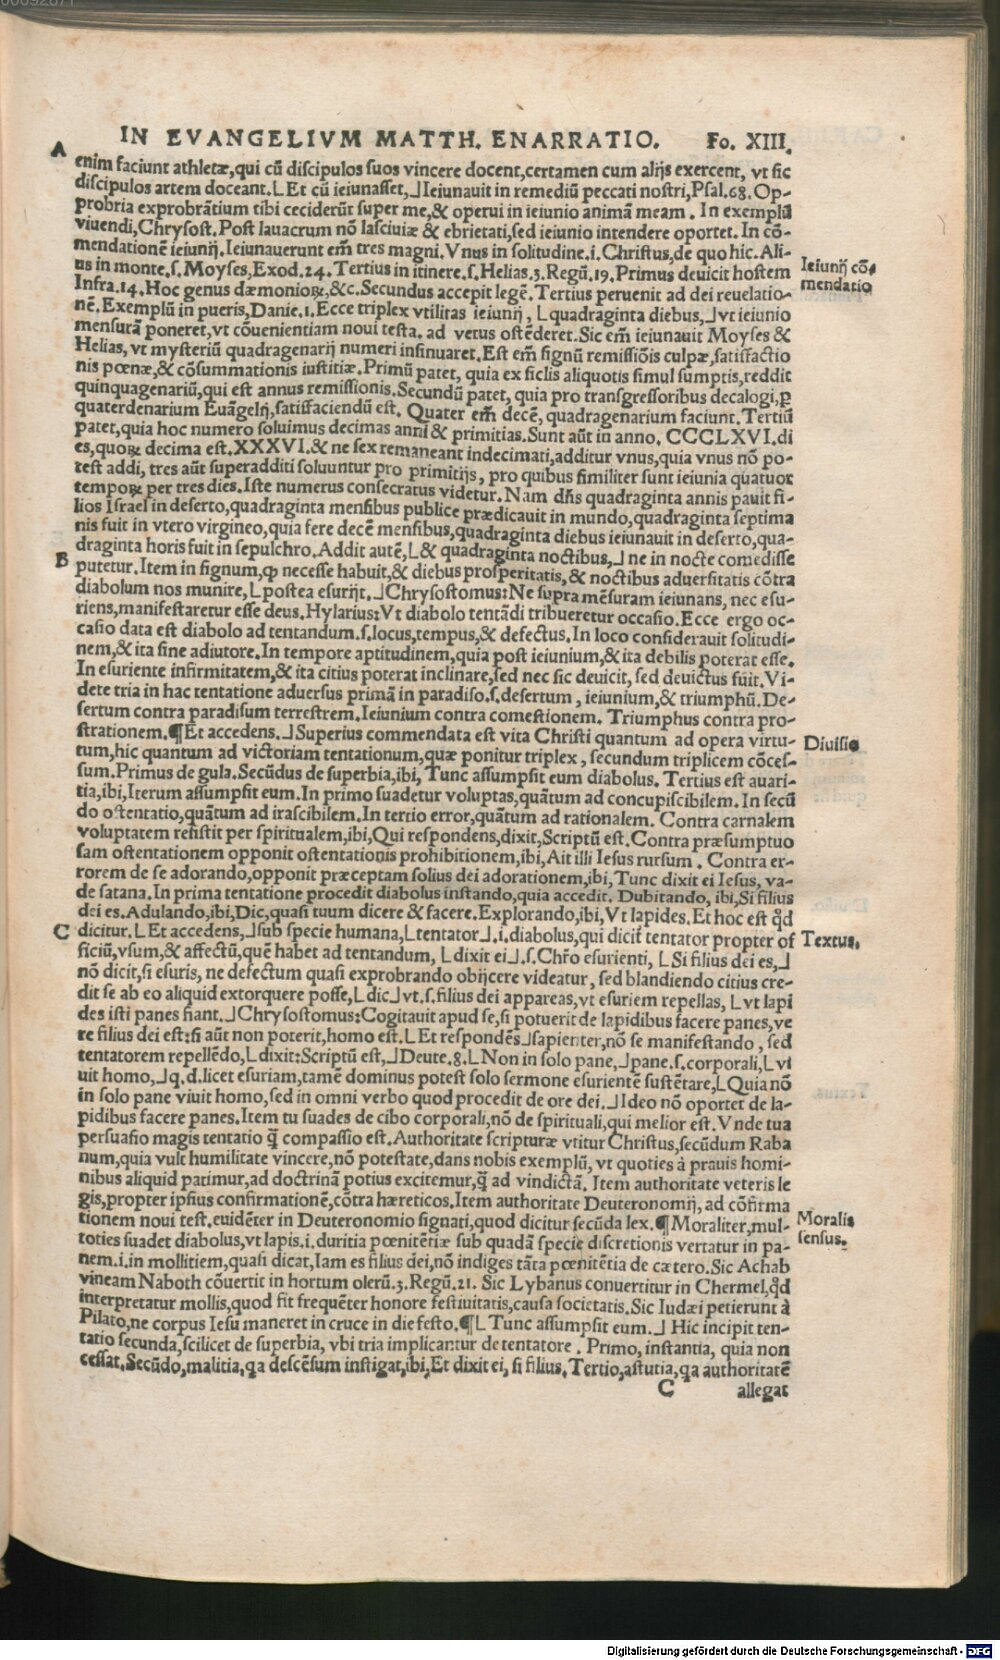 IN EVANGELIVM MATTH. ENARRATIO. Fo. XIII.
A
enim faciunt athletæ,qui cũ discipulos suos vincere docent,certamen cum alijs exercent, vt sic
discipulos artem doceant.⌊Et cũ ieiunasset,⌋Ieiunauit in remediũ peccati nostri,Psal.68.Op-
probria exprobrãtium tibi ceciderũt super me,& operui in ieiunio animã meam. In exemplũ
viuendi,Chrysost.Post lauacrum nõ lasciuiæ & ebrietati,sed ieiunio intendere oportet. In cõ-
mendationẽ ieiunij.Ieiunauerunt em̃ tres magni.Vnus in solitudine.i.Christus,de quo hic. Ali-
us in monte.s.Moyses,Exod.24.Tertius in itinere.s.Helias.3.Regũ.19.Primus deuicit hostem
Infra.14.Hoc genus dæmonioꝝ,&c.Secundus accepit legẽ.Tertius peruenit ad dei reuelatio-
nẽ.Exemplũ in pueris,Danie.1.Ecce triplex vtilitas ieiunij,⌊quadraginta diebus,⌋vt ieiunio
mensurã poneret,vt cõuenientiam noui testa. ad vetus ostẽderet.Sic em̃ ieiunauit Moyses &
Helias,vt mysteriũ quadragenarij numeri insinuaret.Est em̃ signũ remissiõis culpæ,satisfactio
nis pœnæ,& cõsummationis iustitiæ.Primũ patet, quia ex siclis aliquotis simul sumptis,reddit
quinquagenariũ,qui est annus remissionis.Secundũ patet, quia pro transgressoribus decalogi,ꝑ
quaterdenarium Euãgelij,satisfaciendũ est. Quater em̃ decẽ, quadragenarium faciunt.Tertiũ
patet,quia hoc numero soluimus decimas anni & primitias.Sunt aũt in anno. CCCLXVI.di
es,quoꝝ decima est.XXXVI.& ne sex remaneant indecimati,additur vnus,quia vnus nõ po-
test addi, tres aũt superadditi soluuntur pro primitijs, pro quibus similiter sunt ieiunia quatuor
tempoꝝ per tres dies.Iste numerus consecratus videtur.Nam dñs quadraginta annis pauit fi-
lios Israel in deserto,quadraginta mensibus publice prædicauit in mundo,quadraginta septima
nis fuit in vtero virgineo,quia fere decẽ mensibus,quadraginta diebus ieiunauit in deserto,qua-
draginta horis fuit in sepulchro.Addit autẽ,⌊& quadraginta noctibus,⌋ne in nocte comedisse
B
putetur.Item in signum,ꝙ necesse habuit,& diebus prosperitatis,& noctibus aduersitatis cõtra
diabolum nos munire,⌊postea esurijt.⌋Chrysostomus:Ne supra mẽsuram ieiunans, nec esu-
riens,manifestaretur esse deus.Hylarius:Vt diabolo tentãdi tribueretur occasio.Ecce ergo oc-
casio data est diabolo ad tentandum.s.locus,tempus,& defectus.In loco considerauit solitudi-
nem,& ita sine adiutore.In tempore aptitudinem,quia post ieiunium,& ita debilis poterat esse.
In esuriente infirmitatem,& ita citius poterat inclinare,sed nec sic deuicit, sed deuictus fuit.Vi-
dete tria in hac tentatione aduersus primã in paradiso.s.desertum, ieiunium,& triumphũ.De-
sertum contra paradisum terrestrem.Ieiunium contra comestionem. Triumphus contra pro-
strationem.¶Et accedens.⌋Superius commendata est vita Christi quantum ad opera virtu-
tum,hic quantum ad victoriam tentationum,quæ ponitur triplex, secundum triplicem cõces-
sum.Primus de gula.Secũdus de superbia,ibi, Tunc assumpsit eum diabolus. Tertius est auari-
tia,ibi,Iterum assumpsit eum.In primo suadetur voluptas,quãtum ad concupiscibilem. In secũ
do ostentatio,quãtum ad irascibilem.In tertio error,quãtum ad rationalem. Contra carnalem
voluptatem resistit per spiritualem,ibi,Qui respondens,dixit,Scriptũ est.Contra præsumptuo
sam ostentationem opponit ostentationis prohibitionem,ibi,Ait illi Iesus rursum. Contra er-
rorem de se adorando,opponit præceptam solius dei adorationem,ibi,Tunc dixit ei Iesus, va-
de satana.In prima tentatione procedit diabolus instando,quia accedit. Dubitando, ibi,Si filius
dei es.Adulando,ibi,Dic,quasi tuum dicere & facere.Explorando,ibi,Vt lapides.Et hoc est qd̃
C
dicitur.⌊Et accedens,⌋sub specie humana,⌊tentator⌋.i.diabolus,qui dicit̃ tentator propter of
ficiũ,vsum,& affectũ,quẽ habet ad tentandum,⌊dixit ei⌋.s.Chr̃o esurienti,⌊Si filius dei es,⌋
nõ dicit,si esuris, ne defectum quasi exprobrando obijcere videatur, sed blandiendo citius cre-
dit se ab eo aliquid extorquere posse,⌊dic⌋vt.s.filius dei appareas,vt esuriem repellas,⌊vt lapi
des isti panes fiant.⌋Chrysostomus:Cogitauit apud se,si potuerit de lapidibus facere panes,ve
re filius dei est:si aũt non poterit,homo est.⌊Et respondẽs⌋sapienter,nõ se manifestando, sed
tentatorem repellẽdo,⌊dixit:Scriptũ est,⌋Deute.8.⌊Non in solo pane,⌋pane.s.corporali,⌊vi
uit homo,⌋q.d.licet esuriam,tamẽ dominus potest solo sermone esurientẽ sustẽtare,⌊Quia nõ
in solo pane viuit homo,sed in omni verbo quod procedit de ore dei.⌋Ideo nõ oportet de la-
pidibus facere panes.Item tu suades de cibo corporali,nõ de spirituali,qui melior est.Vnde tua
persuasio magis tentatio q̃ compassio est.Authoritate scripturæ vtitur Christus,secũdum Raba
num,quia vult humilitate vincere,nõ potestate,dans nobis exemplũ, vt quoties à prauis homi-
nibus aliquid patimur,ad doctrinã potius excitemur,q̃ ad vindictã. Item authoritate veteris le
gis,propter ipsius confirmationẽ,cõtra hæreticos.Item authoritate Deuteronomij, ad cõfirma
tionem noui test.euidẽter in Deuteronomio signati,quod dicitur secũda lex.¶Moraliter,mul-
toties suadet diabolus,vt lapis.i.duritia pœnitẽtiæ sub quadã specie discretionis vertatur in pa-
nem.i.in mollitiem,quasi dicat,Iam es filius dei,nõ indiges tãta pœnitẽtia de cætero.Sic Achab
vineam Naboth cõuertit in hortum olerũ.3.Regũ.21. Sic Lybanus conuertitur in Chermel,qd̃
interpretatur mollis,quod fit frequẽter honore festiuitatis,causa societatis.Sic Iudæi petierunt à
Pilato,ne corpus Iesu maneret in cruce in die festo.¶⌊Tunc assumpsit eum.⌋Hic incipit ten-
tatio secunda,scilicet de superbia, vbi tria implicantur de tentatore. Primo, instantia, quia non
cessat.Secũdo,malitia,qa descẽsum instigat,ibi,Et dixit ei, si filius.Tertio,astutia,qa authoritatẽ
C allegat
Ieiunij cõ-
mendatio
Diuisio
Textus.
Moralis
sensus.
Digitalisierung gefördert durch die Deutsche Forschungsgemeinschaft - DFG